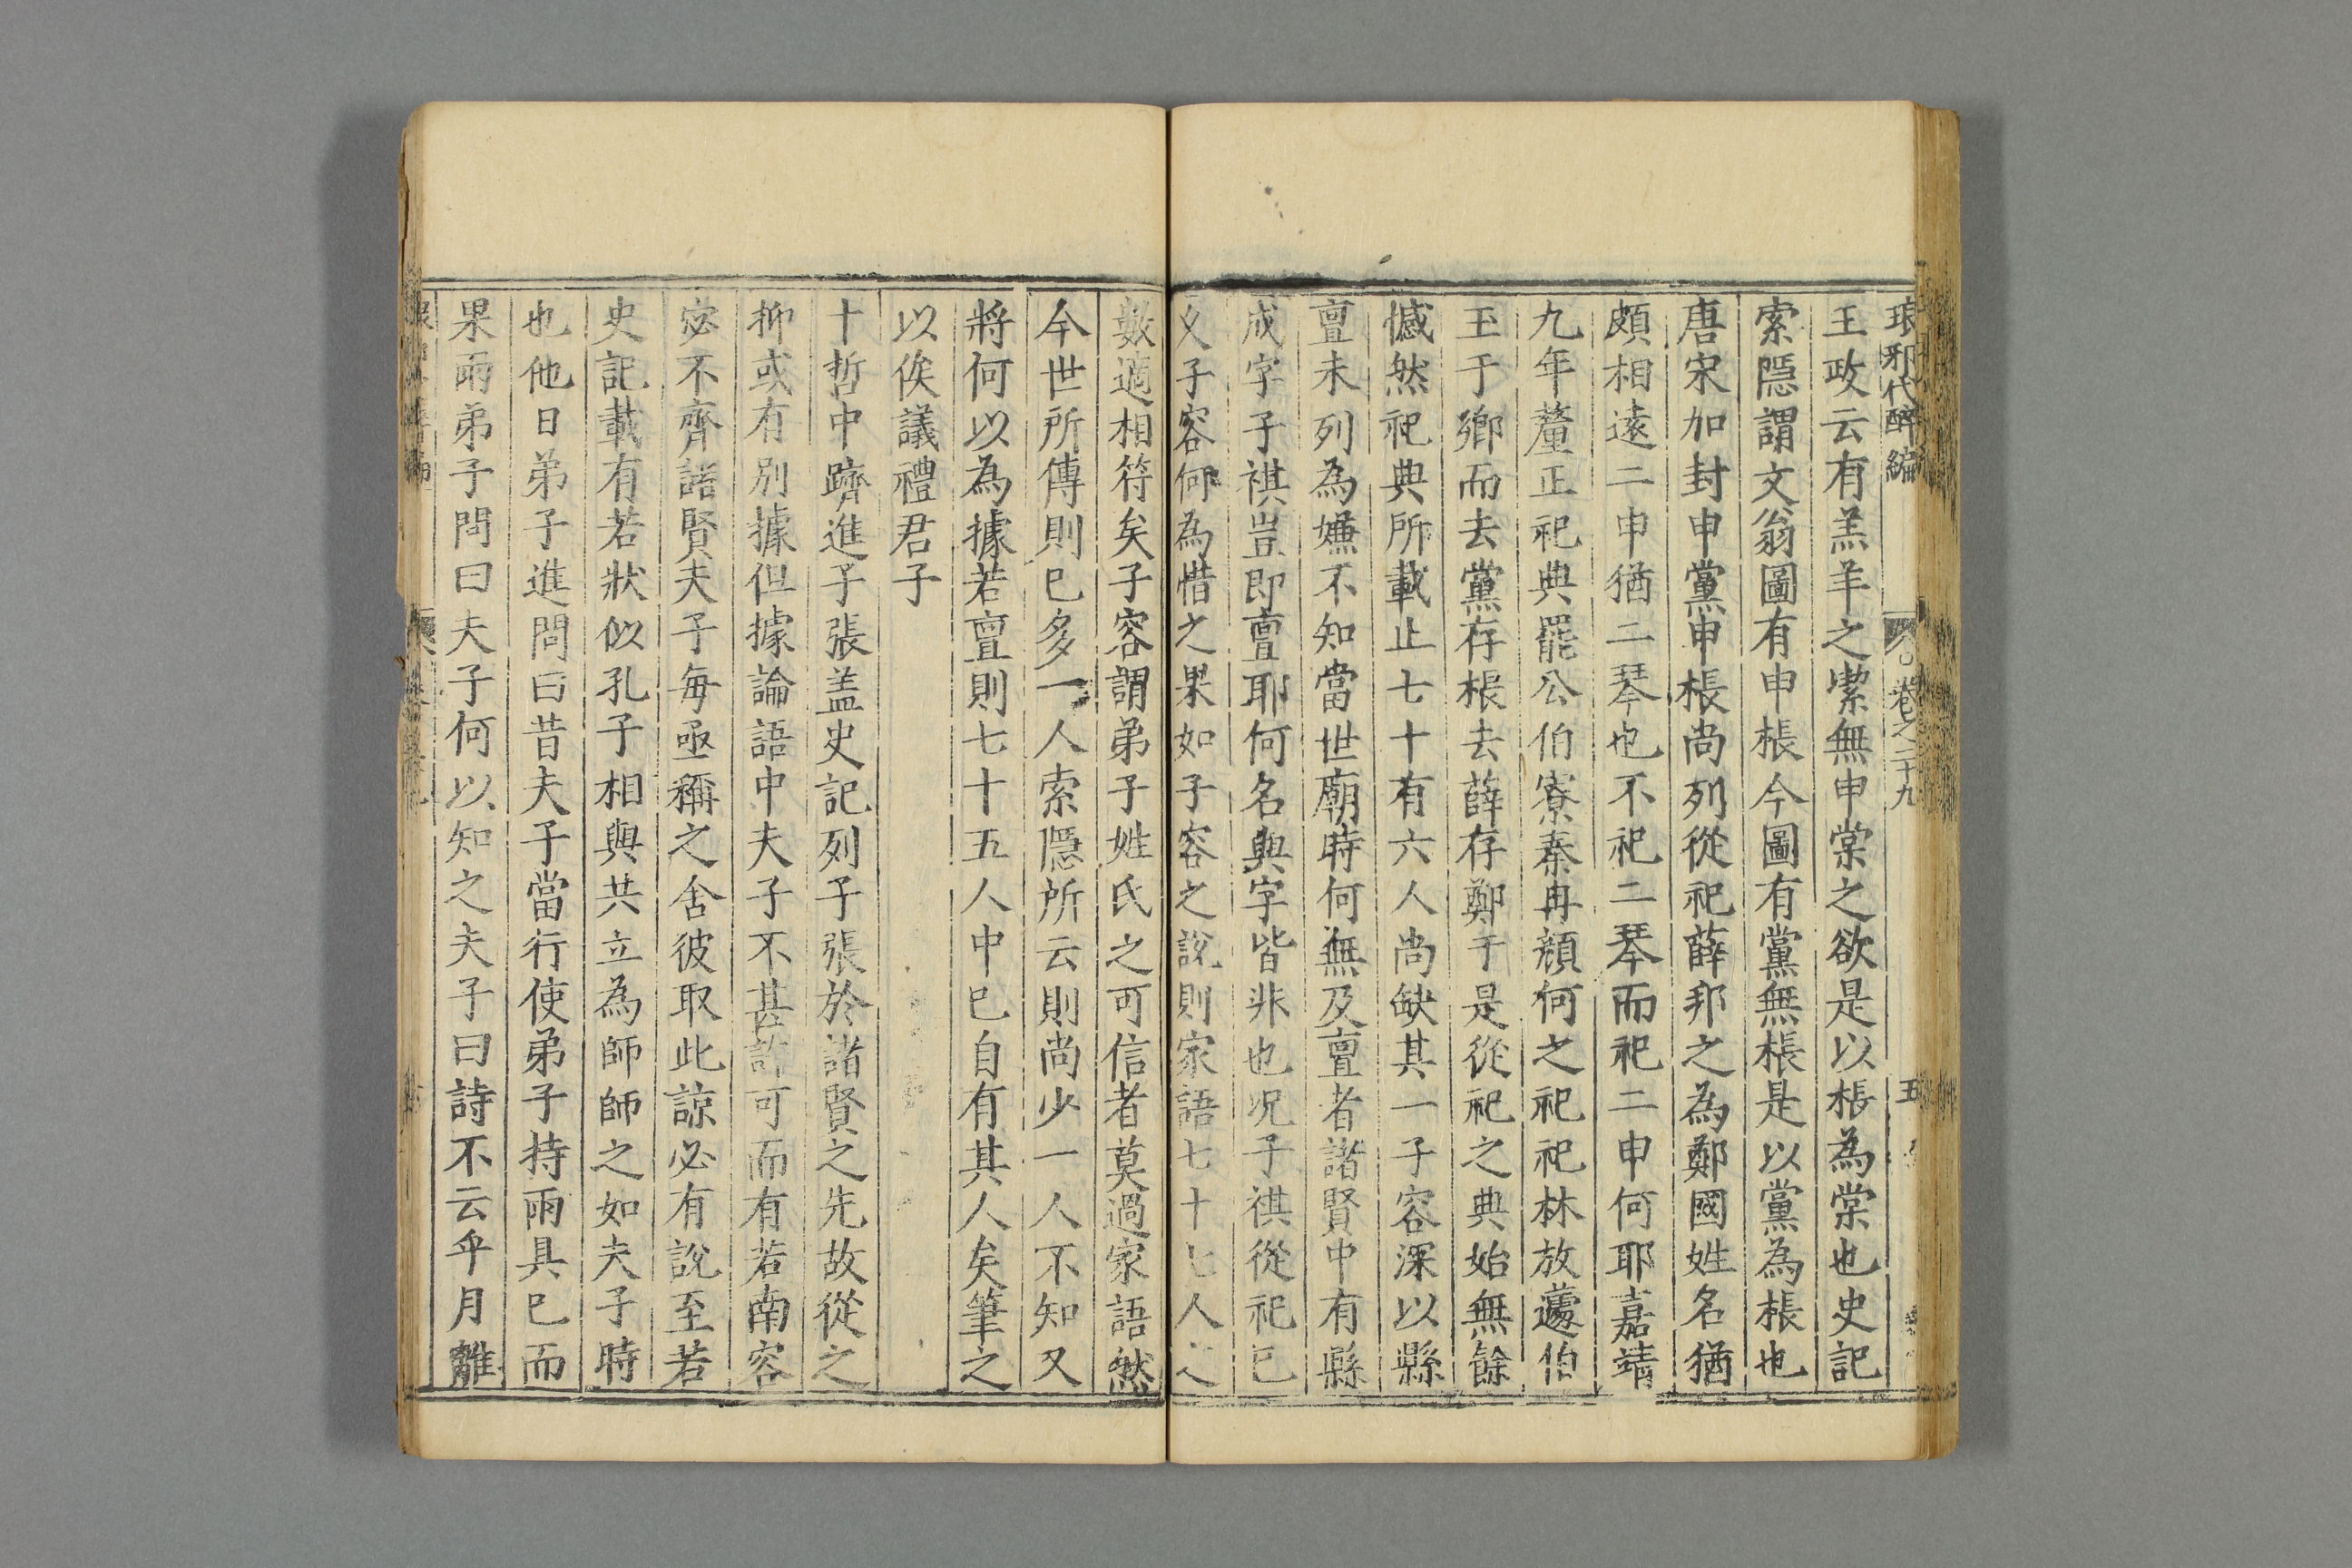 琅邪代醉編 卷之二十九 五
王政云有羔羊之潔無申棠之欲是以棖為棠也史記
索隱謂文翁圖有申棖今圖有黨無棖是以黨為棖也
唐宋加封申黨申棖尚列從祀薛邦之為鄭國姓名猶
頗相遠二申猶二琴也不祀二琴而祀二申何耶嘉靖
九年釐正祀典罷公伯寮秦冉顏何之祀祀林放蘧伯
玉于鄉而去黨存棖去薛存鄭于是從祀之典始無餘
憾然祀典所載止七十有六人尚缺其一子容深以縣
亶未列為嫌不知當世廟時何無及亶者諸賢中有縣
成字子祺豈即亶耶何名與字皆非也况子祺從祀已
乆子容何為惜之果如子容之說則家語七十七人之
數適相符矣子容謂弟子姓氏之可信者莫過家語然
今世所傳則已多一人索隱所云則尚少一人不知又
將何以為據若亶則七十五人中已自有其人矣筆之
以俟議禮君子
十哲中躋進子張盖史記列子張於諸賢之先故從之
抑或有別據但據論語中夫子不甚許可而有若南容
宓不齊諸賢夫子每亟稱之舍彼取此諒必有說至若
史記載有若狀似孔子相與共立為師師之如夫子時
也他日弟子進問曰昔夫子當行使弟子持雨具已而
果雨弟子問曰夫子何以知之夫子曰詩不云乎月離